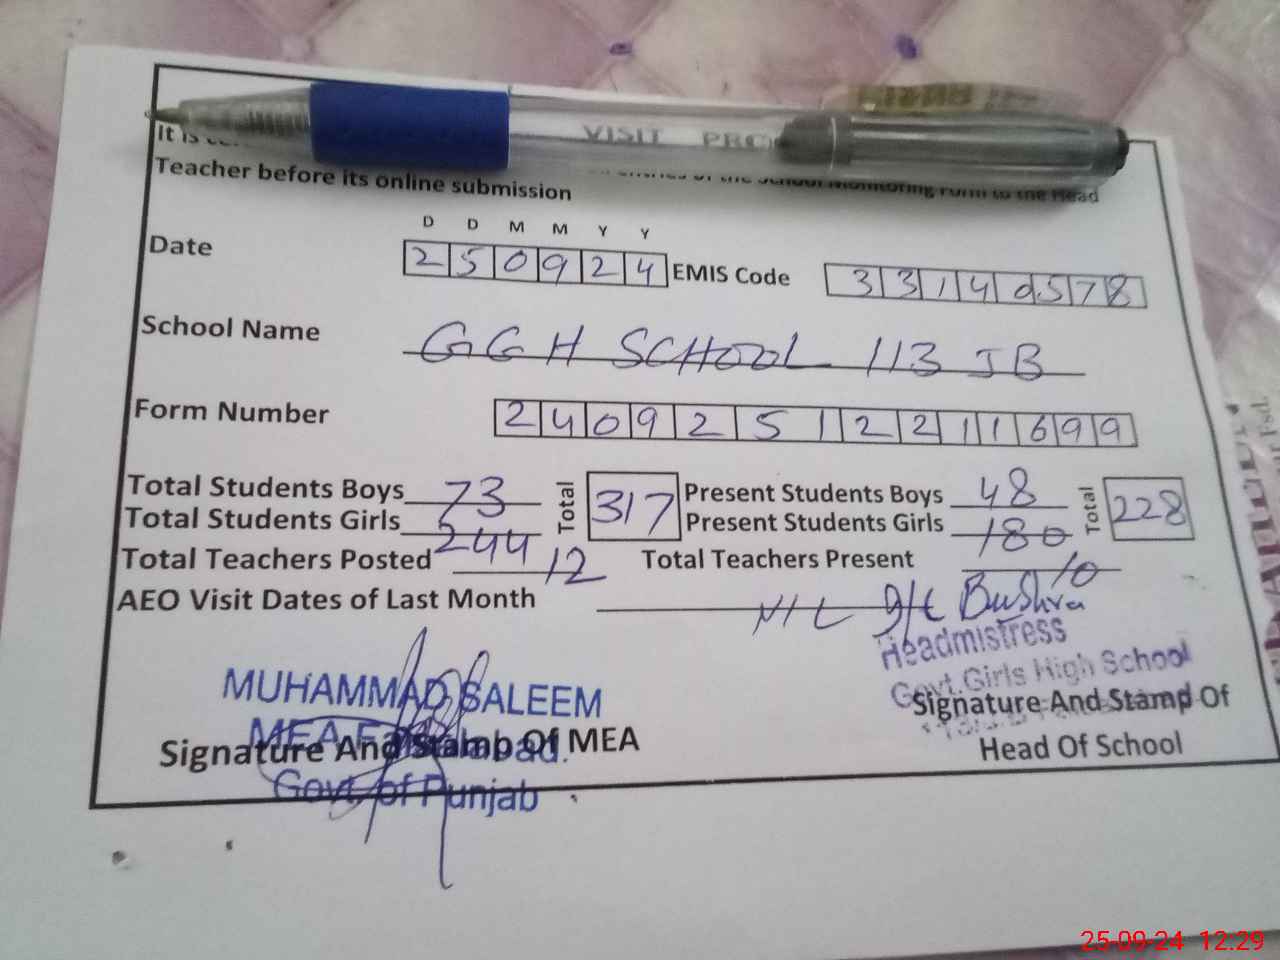 VISIT PRO
It is
entries of the School Monitoring Form to the Head
Teacher before its online submission
D D M M Y Y
Date 250924 EMIS Code 33140578
School Name GGH SCHOOL 113 JB
Form Number 24092512211699
Total Students Boys 73 Total 317 Present Students Boys 48 Total 228
Total Students Girls 244 Present Students Girls 180
Total Teachers Posted 12 Total Teachers Present 10
AEO Visit Dates of Last Month NIL I/C Bushra
Headmistress
Govt. Girls High School
MUHAMMAD SALEEM
MEA
Signature And Stamp Of MEA
Govt. of Punjab
Signature And Stamp Of
Head Of School
25-09-24 12:29